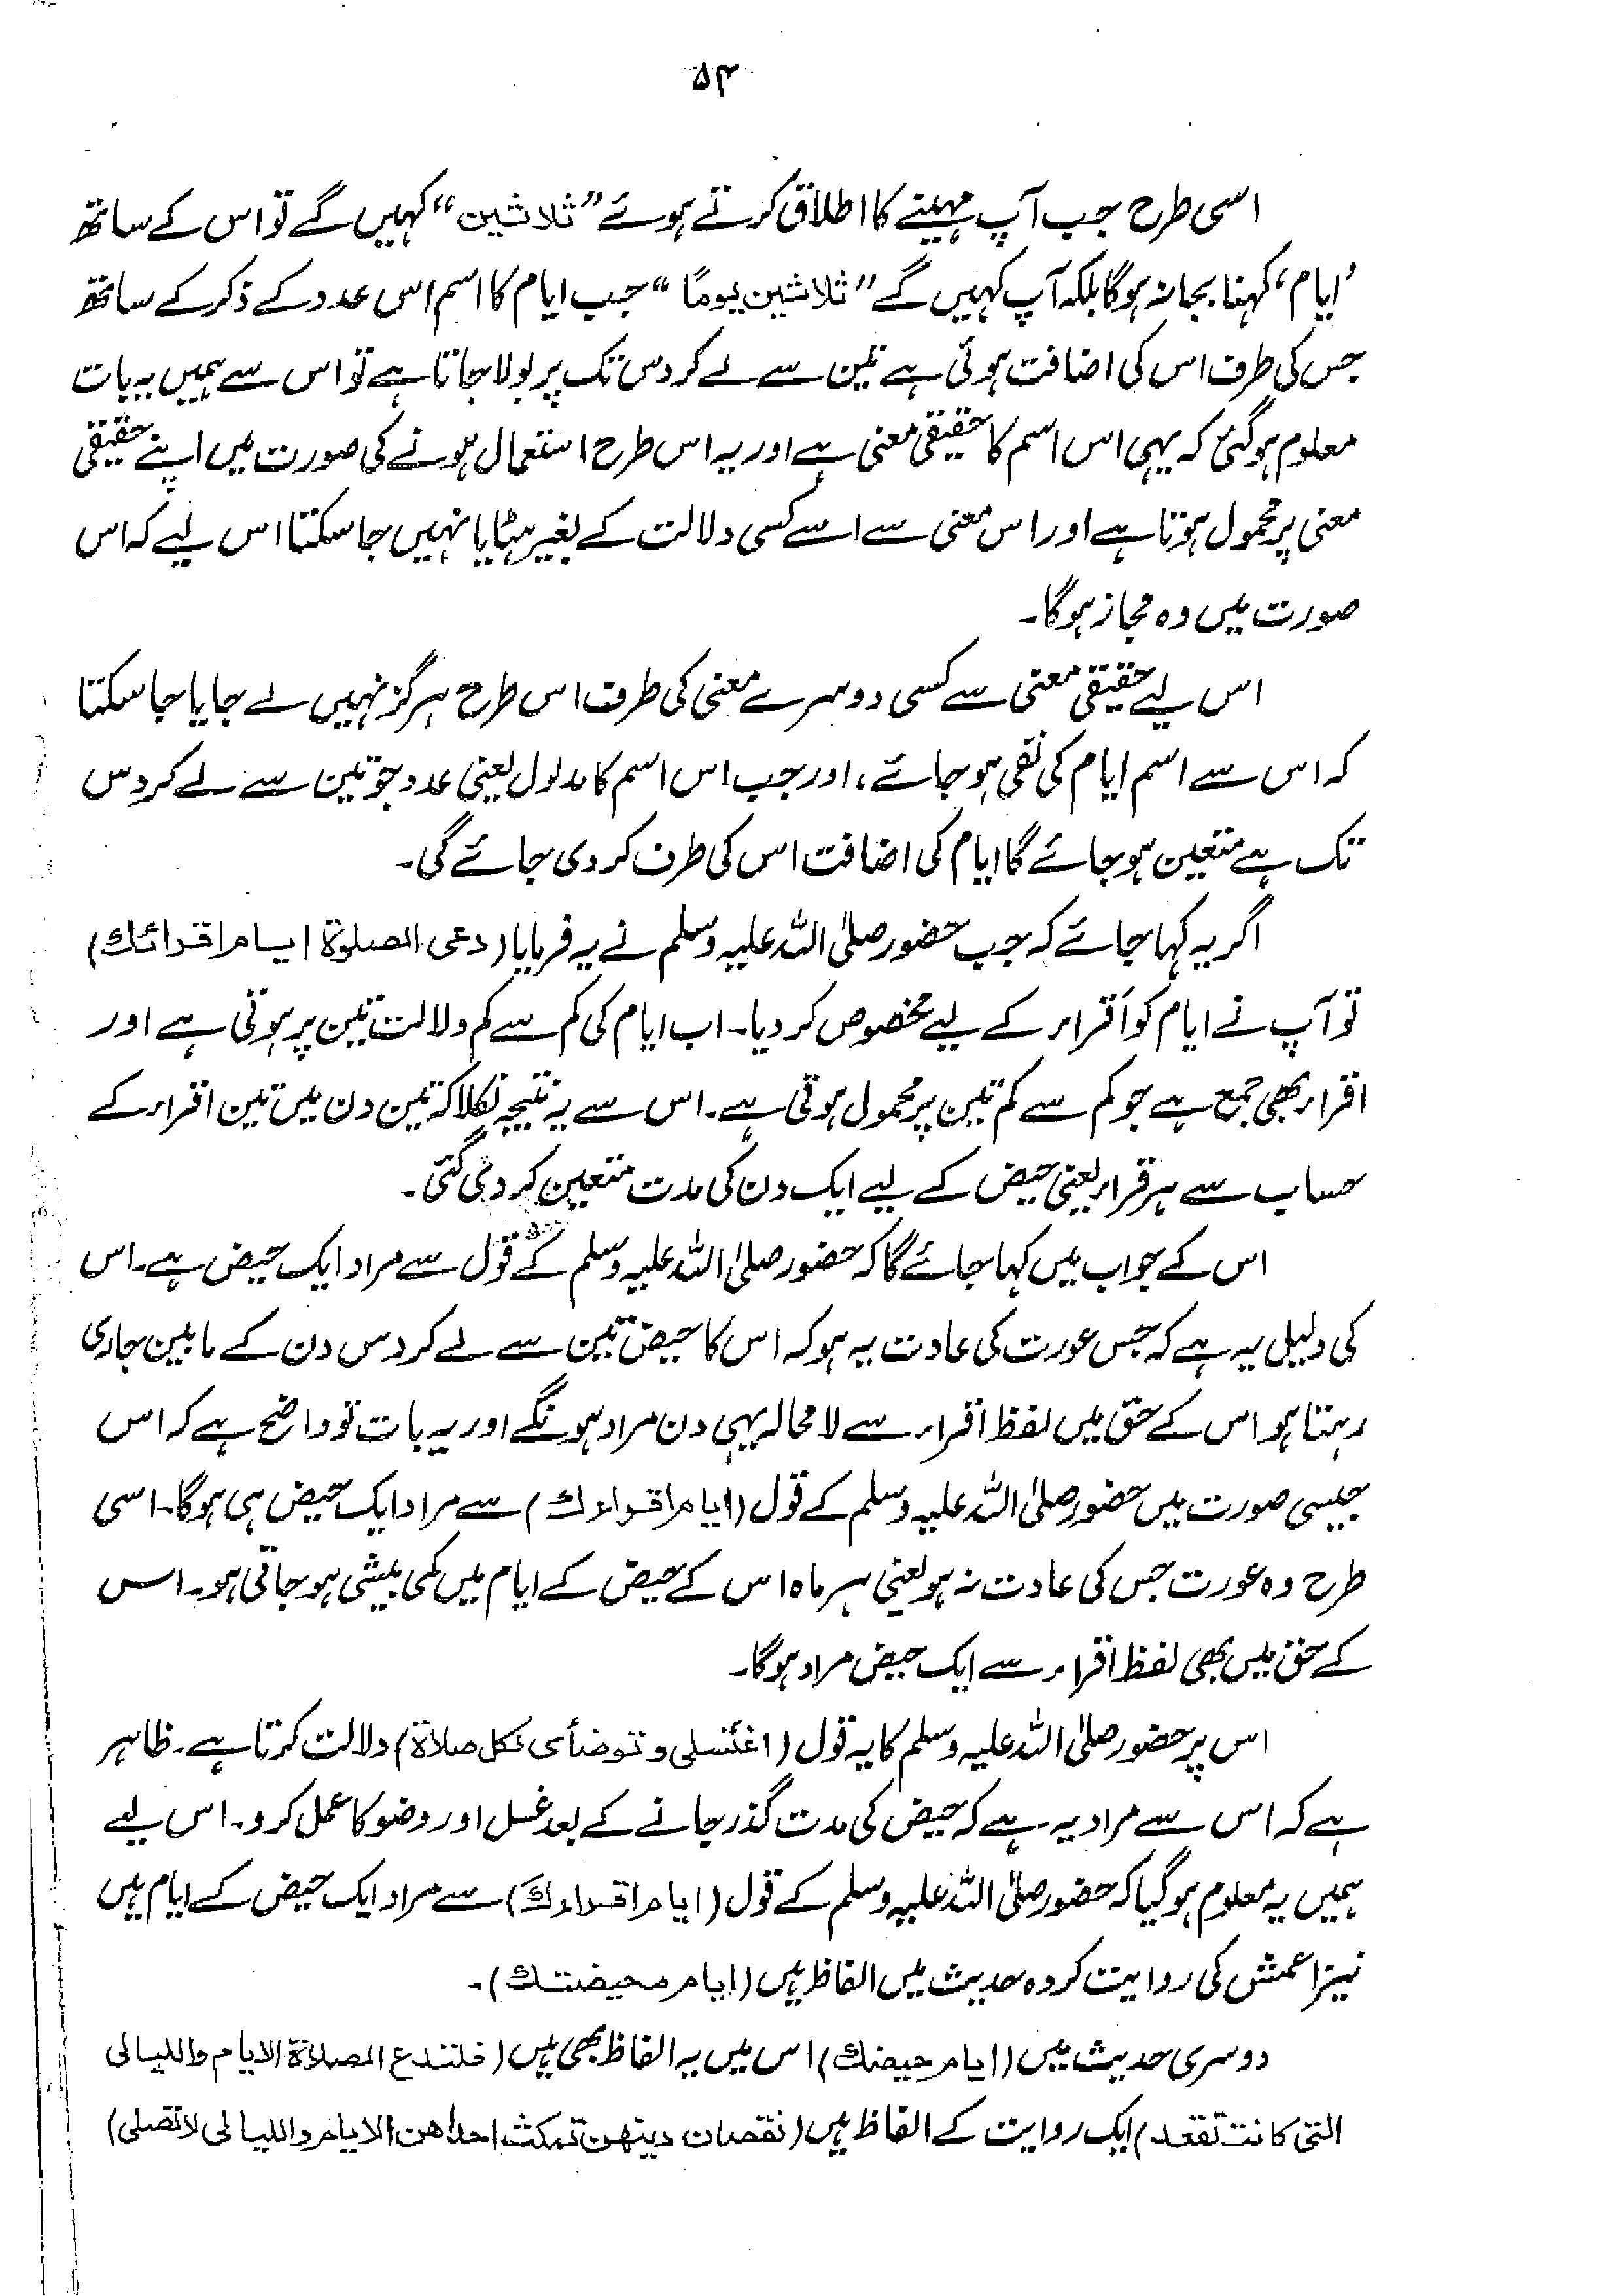 ۵۴
اسی طرح جب آپ مہینے کا اطلاق کرتے ہوئے ”ثلاثین“ کہیں گے تو اس کے ساتھ
’ایام‘ کہنا بجا نہ ہوگا بلکہ آپ کہیں گے ”ثلاثین یوماً“ جب ایام کا اسم اس عدد کے ذکر کے ساتھ
جس کی طرف اس کی اضافت ہوئی ہے تین سے لے کر دس تک پر بولا جاتا ہے تو اس سے ہمیں یہ بات
معلوم ہوگئی کہ یہی اس اسم کا حقیقی معنی ہے اور یہ اس طرح استعمال ہونے کی صورت میں اپنے حقیقی
معنی پر محمول ہوتا ہے اور اس معنی سے اسے کسی دلالت کے بغیر ہٹایا نہیں جا سکتا اس لیے کہ اس
صورت میں وہ مجاز ہوگا۔
اس لیے حقیقی معنی سے کسی دوسرے معنی کی طرف اس طرح ہرگز نہیں لے جایا جا سکتا
کہ اس سے اسم ایام کی نفی ہو جائے، اور جب اس اسم کا مدلول یعنی عدد جو تین سے لے کر دس
تک ہے متعین ہو جائے گا ایام کی اضافت اس کی طرف کر دی جائے گی۔
اگر یہ کہا جائے کہ جب حضور صلی اللہ علیہ وسلم نے یہ فرمایا (دعی الصلوۃ ایام اقرائک)
تو آپ نے ایام کو اَقراء کے لیے مخصوص کر دیا۔ اب ایام کی کم سے کم دلالت تین پر ہوتی ہے اور
اقراء بھی جمع ہے جو کم سے کم تین پر محمول ہوتی ہے۔ اس سے یہ نتیجہ نکلا کہ تین دن میں تین اقراء کے
حساب سے ہر قراء یعنی حیض کے لیے ایک دن کی مدت متعین کر دی گئی۔
اس کے جواب میں کہا جائے گا کہ حضور صلی اللہ علیہ وسلم کے قول سے مراد ایک حیض ہے۔ اس
کی دلیل یہ ہے کہ جس عورت کی عادت یہ ہو کہ اس کا حیض تین سے لے کر دس دن کے مابین جاری
رہتا ہو اس کے حق میں لفظ اقراء سے لامحالہ یہی دن مراد ہونگے اور یہ بات تو واضح ہے کہ اس
جیسی صورت میں حضور صلی اللہ علیہ وسلم کے قول (ایام اقراءک) سے مراد ایک حیض ہی ہوگا۔ اسی
طرح وہ عورت جس کی عادت نہ ہو یعنی ہر ماہ اس کے حیض کے ایام میں کمی بیشی ہو جاتی ہو۔ اس
کے حق میں بھی لفظ اقراء سے ایک حیض مراد ہوگا۔
اس پر حضور صلی اللہ علیہ وسلم کا یہ قول (اغتسلی و توضأی لکل صلاۃ) دلالت کرتا ہے۔ ظاہر
ہے کہ اس سے مراد یہ ہے کہ حیض کی مدت گذر جانے کے بعد غسل اور وضو کا عمل کرو۔ اس لیے
ہمیں یہ معلوم ہو گیا کہ حضور صلی اللہ علیہ وسلم کے قول (ایام اقراءک) سے مراد ایک حیض کے ایام ہیں
نیز اعمش کی روایت کردہ حدیث میں الفاظ ہیں (ایام محیضتک)۔
دوسری حدیث میں (ایام حیضک) اس میں یہ الفاظ بھی ہیں (فلتدع الصلاۃ الایام واللیالی
التی کانت تقعد) ایک روایت کے الفاظ ہیں (نقصان دینھن تمکث احداھن الایام واللیالی لا تصلی)